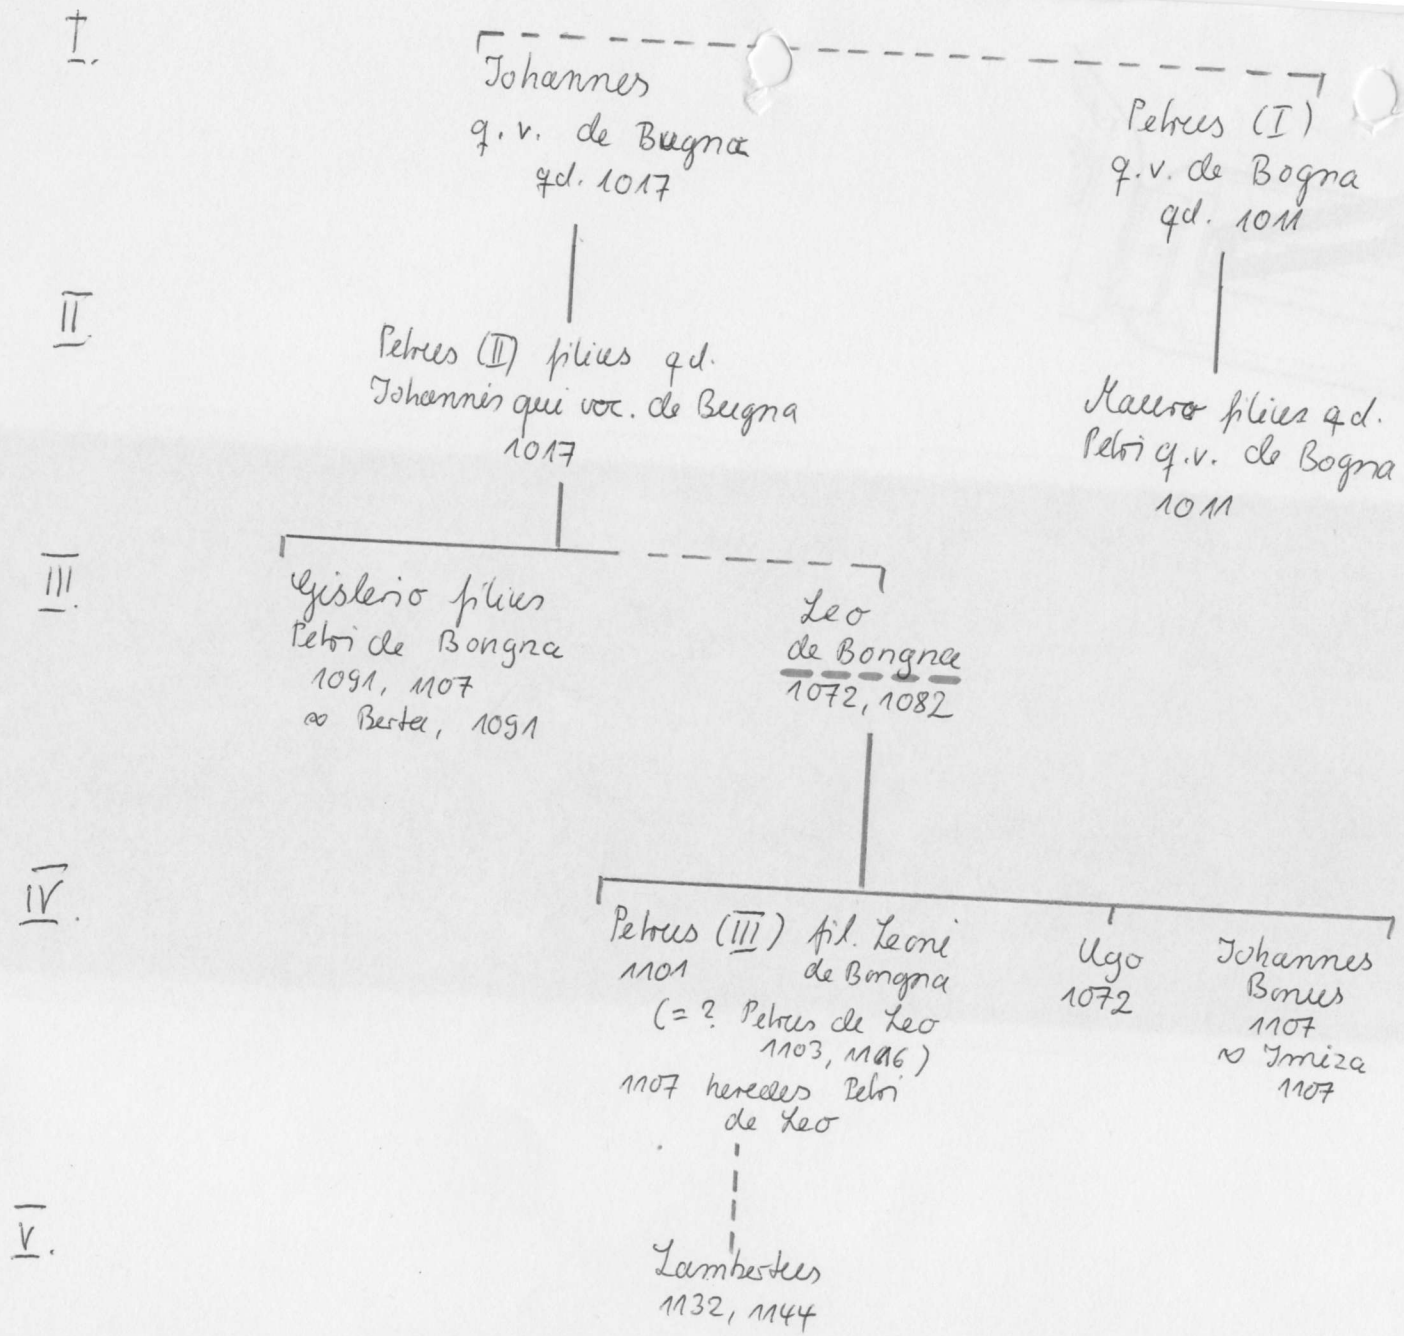 I.
Johannes
q. v. de Bugna
qd. 1017
Petrus (I)
q.v. de Bogna
qd. 1011
II.
Petrus (II) filius qd.
Johannis qui voc. de Bugna
1017
Mauro filius qd.
Petri q.v. de Bogna
1011
III.
Gislerio filius
Petri de Bongna
1091, 1107
∞ Berta, 1091
Leo
de Bongna
1072, 1082
IV.
Petrus (III) fil. Leoni
1101 de Bongna
(= ? Petrus de Leo
1103, 1106)
1107 heredes Petri
de Leo
Ugo
1072
Johannes
Bonus
1107
∞ Imiza
1107
V.
Lambertus
1132, 1144